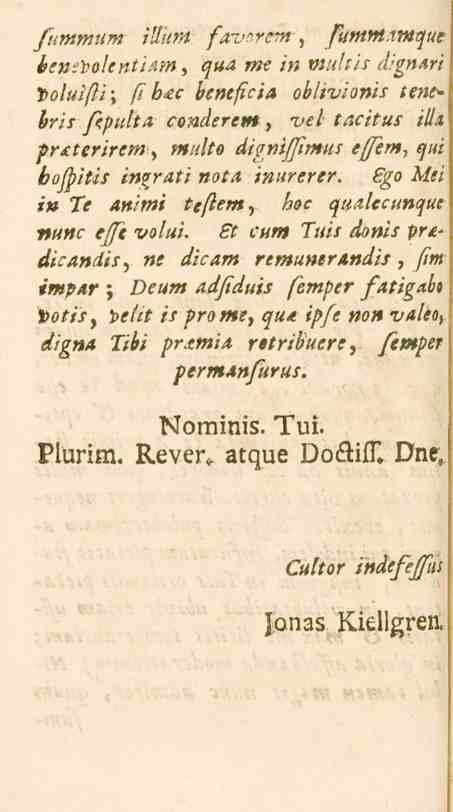 ſummum illum favorem, ſummamque
benevolentiam, qua me in multis dignari
voluiſti; ſi hæc beneficia oblivionis tene-
bris ſepulta conderem, vel tacitus illa
præterirem, multo digniſſimus eſſem, qui
hoſpitis ingrati nota inurerer. Ego Mei
in Te animi teſtem, hoc qualecunque
nunc eſſe volui. Et cum Tuis donis præ-
dicandis, ne dicam remunerandis, ſim
impar; Deum adſiduis ſemper fatigabo
votis, velit is pro me, quæ ipſe non valeo,
digna Tibi præmia retribuere, ſemper
permanſurus.
Nominis. Tui.
Plurim. Rever. atque Doctiſſ. Dne.
Cultor indefeſſus
Jonas Kiellgren.